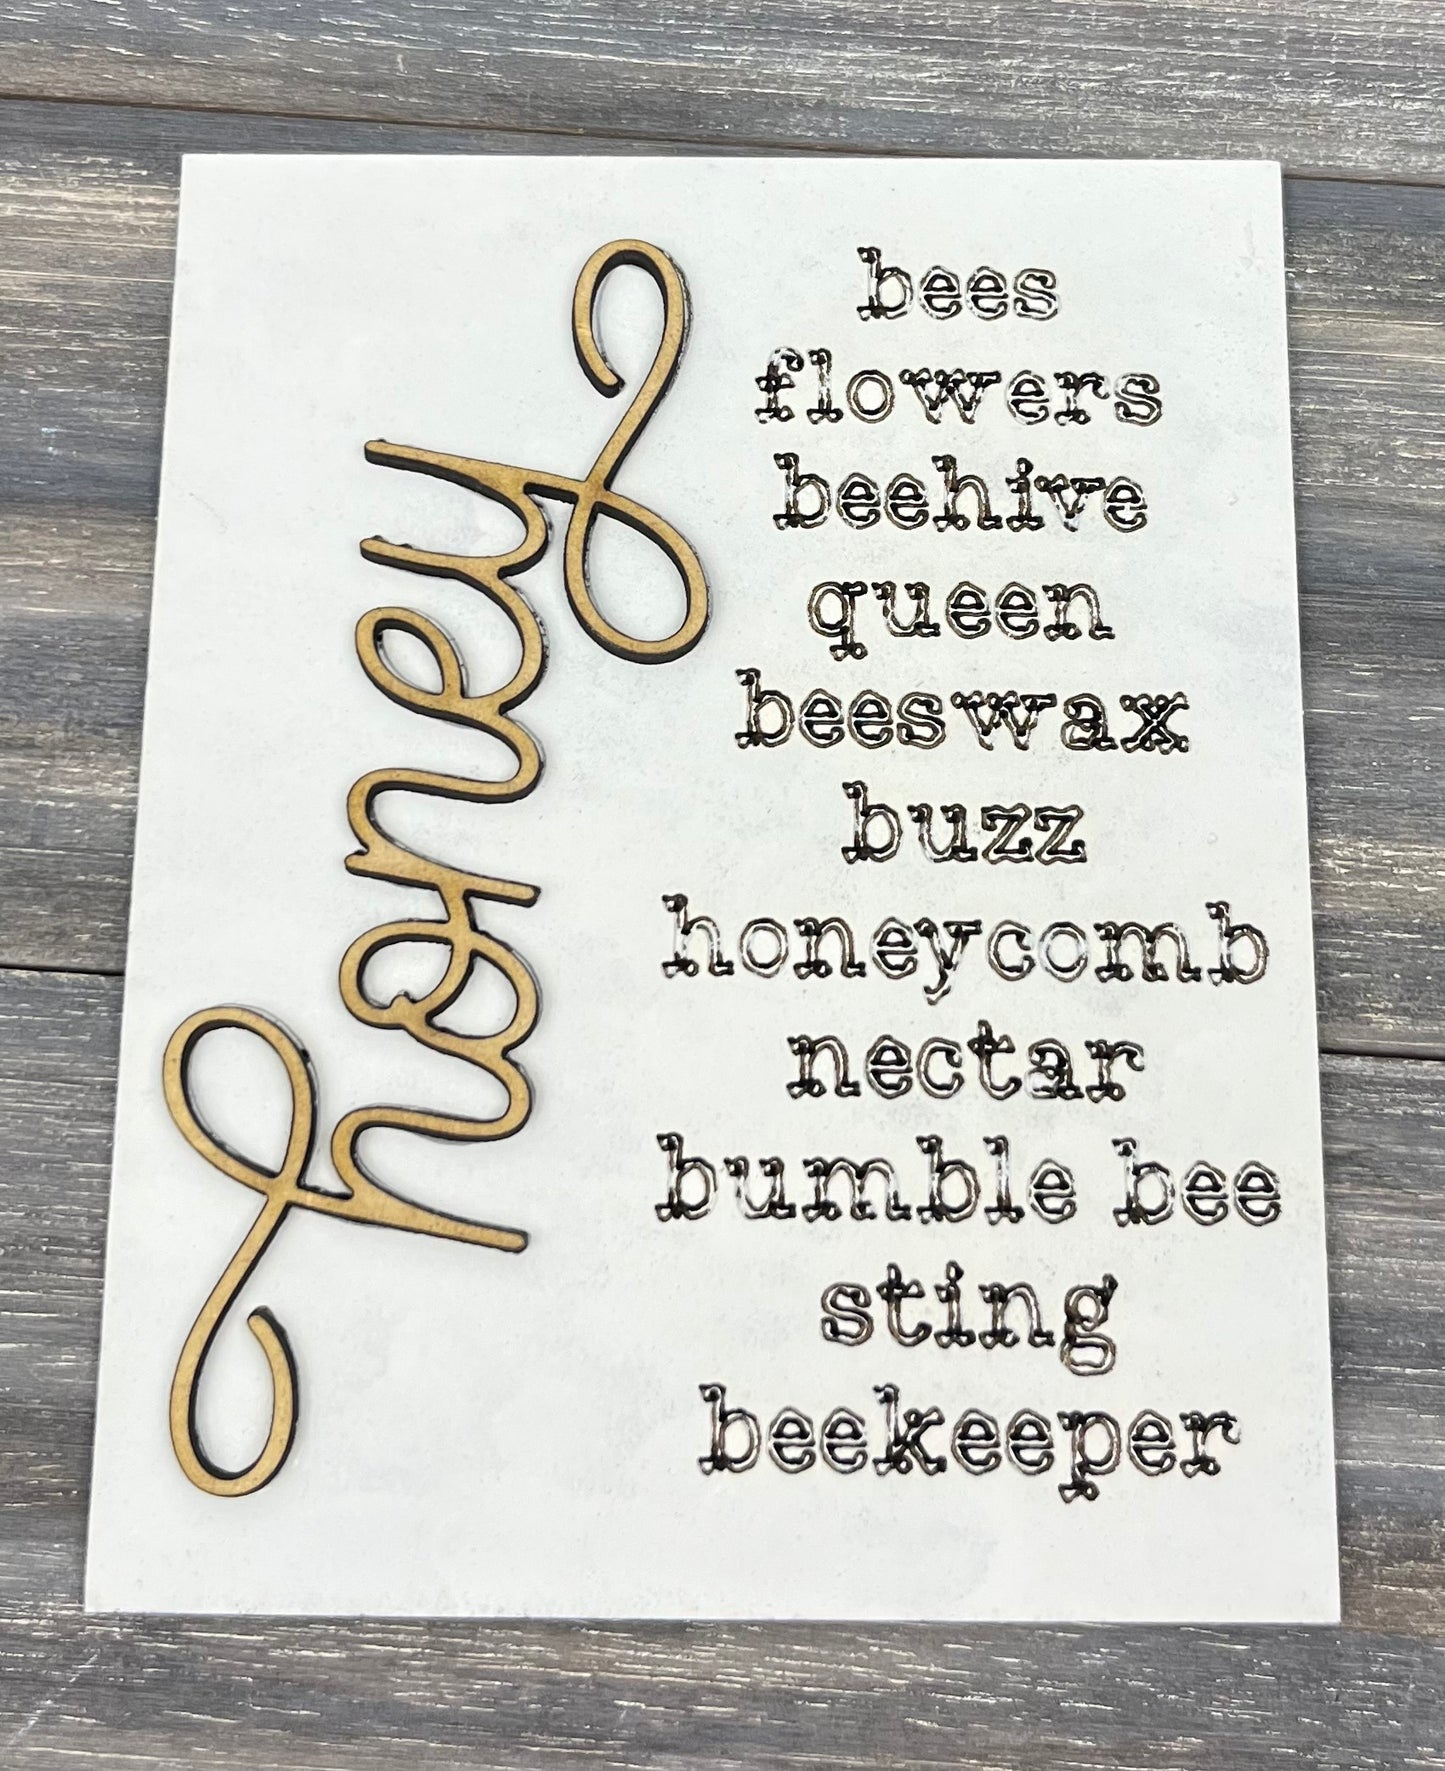 honey
bees
flowers
beehive
queen
beeswax
buzz
honeycomb
nectar
bumble bee
sting
beekeeper